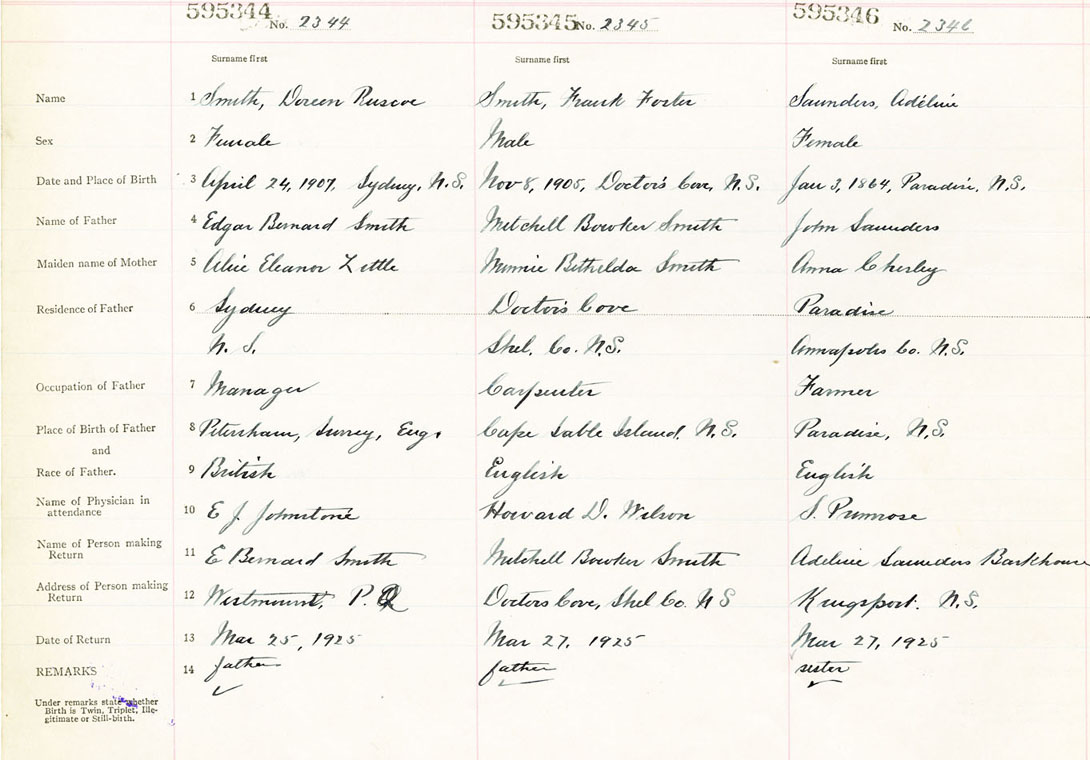 595344 No. 2344 595345 No. 2345 595346 No. 2346
Surname first Surname first Surname first
Name 1 Smith, Doreen Ruscoe Smith, Frank Foster Saunders, Adélinie
Sex 2 Female Male Female
Date and Place of Birth 3 April 24, 1907, Sydney, N.S. Nov 8, 1905, Doctor's Cove, N.S. Jan 3, 1864, Paradise, N.S.
Name of Father 4 Edgar Bernard Smith Mitchell Bowker Smith John Saunders
Maiden name of Mother 5 Alice Eleanor Little Minnie Bethelda Smith Anna Chesley
Residence of Father 6 Sydney Doctor's Cove Paradise
N. S. Shel. Co. N.S. Annapolis Co. N.S.
Occupation of Father 7 Manager Carpenter Farmer
Place of Birth of Father 8 Petersham, Surrey, Eng. Cape Sable Island, N.S. Paradise, N.S.
and
Race of Father. 9 British English English
Name of Physician in
attendance 10 E J. Johnstone Howard D. Wilson S. Primrose
Name of Person making
Return 11 E Bernard Smith Mitchell Bowker Smith Adelinie Saunders Barkhouse
Address of Person making
Return 12 Westmount, P. Q Doctors Cove, Shel Co. N S Kingsport. N.S.
Date of Return 13 Mar 25, 1925 Mar 27, 1925 Mar 27, 1925
REMARKS 14 father father sister
Under remarks state whether
Birth is Twin, Triplet, Ille-
gitimate or Still-birth.